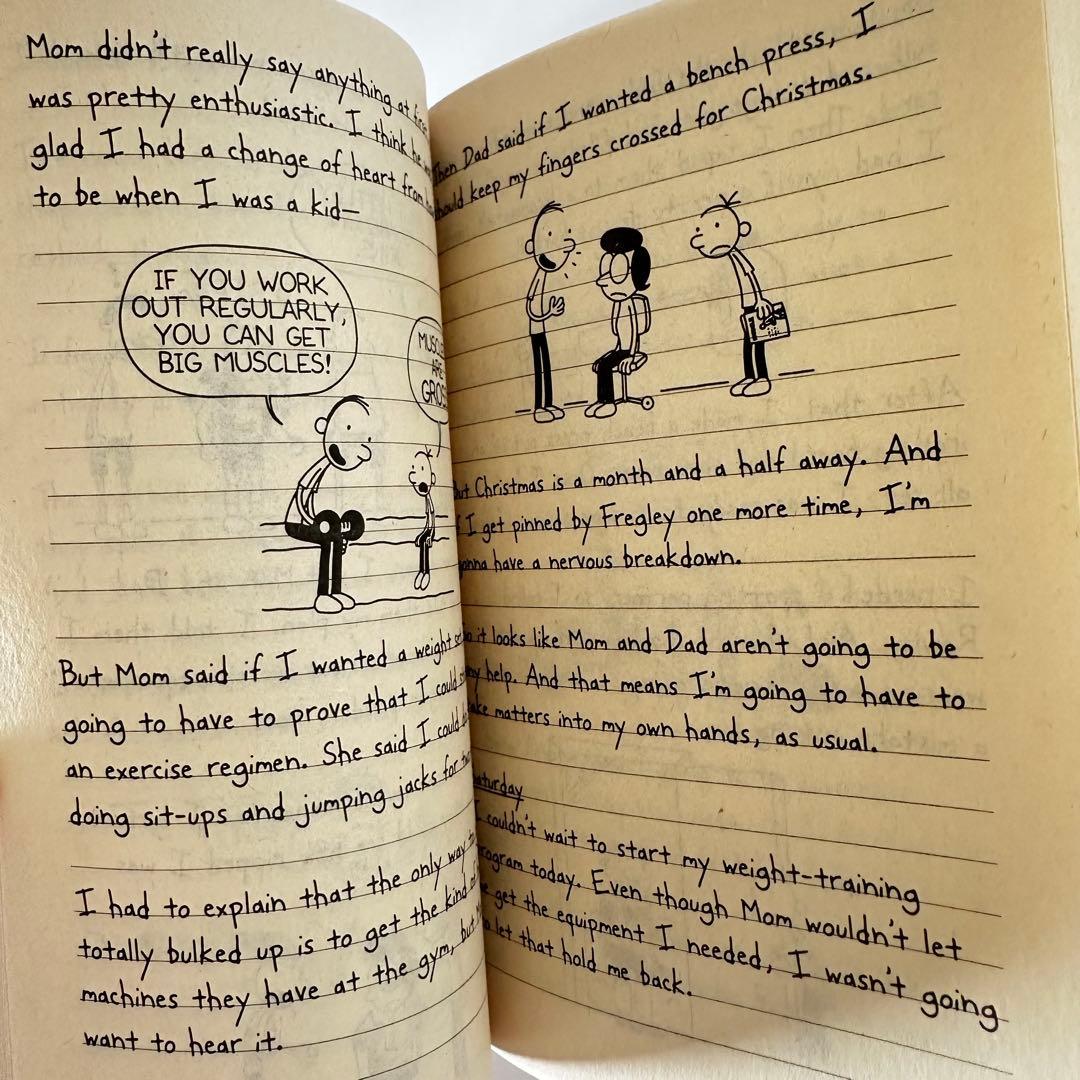 Mom didn't really say anything at
was pretty enthusiastic. I think he
glad I had a change of heart from
to be when I was a kid—
IF YOU WORK
OUT REGULARLY,
YOU CAN GET
BIG MUSCLES!
ARE
But Mom said if I wanted a weight
going to have to prove that I could
an exercise regimen. She said I could
doing sit-ups and jumping jacks for
I had to explain that the only way
totally bulked up is to get the kind of
machines they have at the gym, but
want to hear it.
Then Dad said if I wanted a bench press, I
should keep my fingers crossed for Christmas.
But Christmas is a month and a half away. And
I get pinned by Fregley one more time, I'm
gonna have a nervous breakdown.
it looks like Mom and Dad aren't going to be
my help. And that means I'm going to have to
take matters into my own hands, as usual.
Saturday
I couldn't wait to start my weight-training
program today. Even though Mom wouldn't let
get the equipment I needed, I wasn't going
let that hold me back.